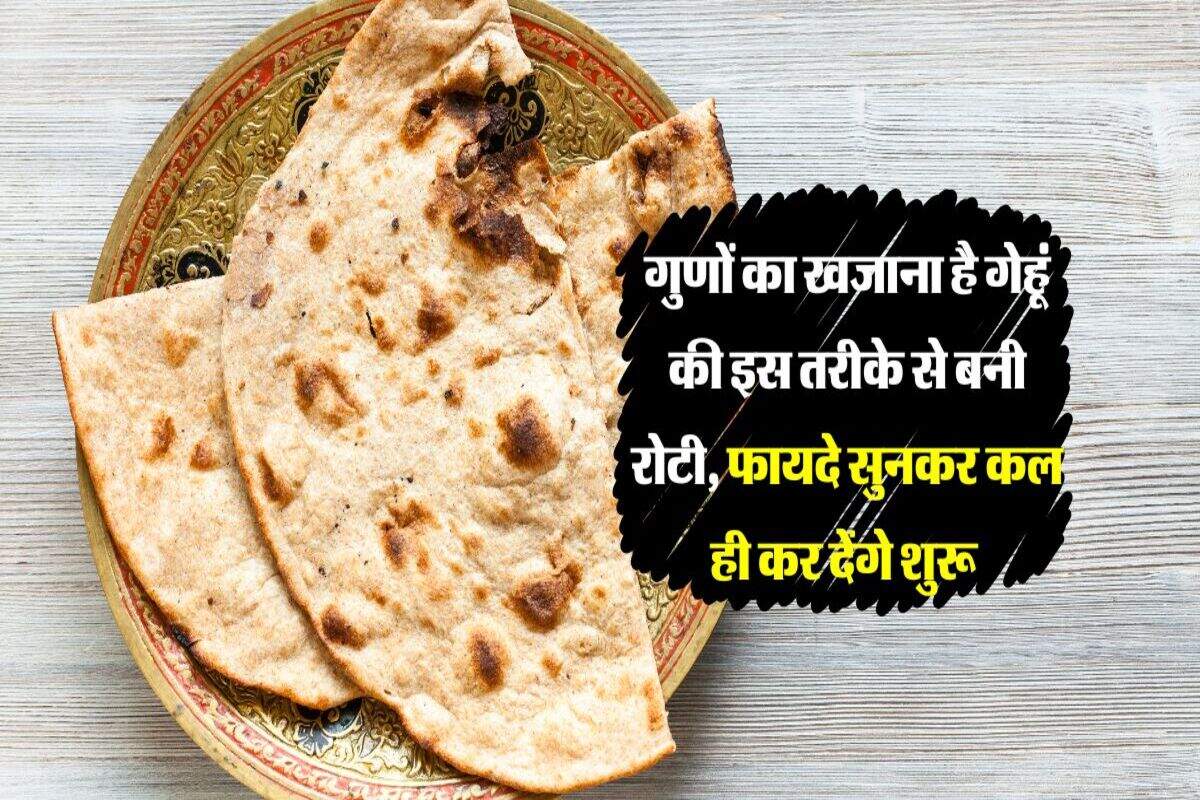 गुणों का खजाना है गेहूं
की इस तरीके से बनी
रोटी, फायदे सुनकर कल
ही कर देंगे शुरू